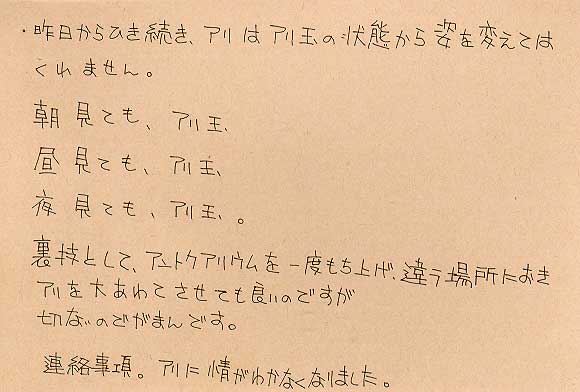 ・昨日からひき続き、アリはアリ玉の状態から姿を変えては
くれません。
朝見ても、アリ玉、
昼見ても、アリ玉、
夜見ても、アリ玉。
裏技として、アントクアリウムを一度もち上げ、違う場所におき
アリを大あわてさせても良いのですが
切ないのでがまんです。
連絡事項。アリに情がわかなくなりました。